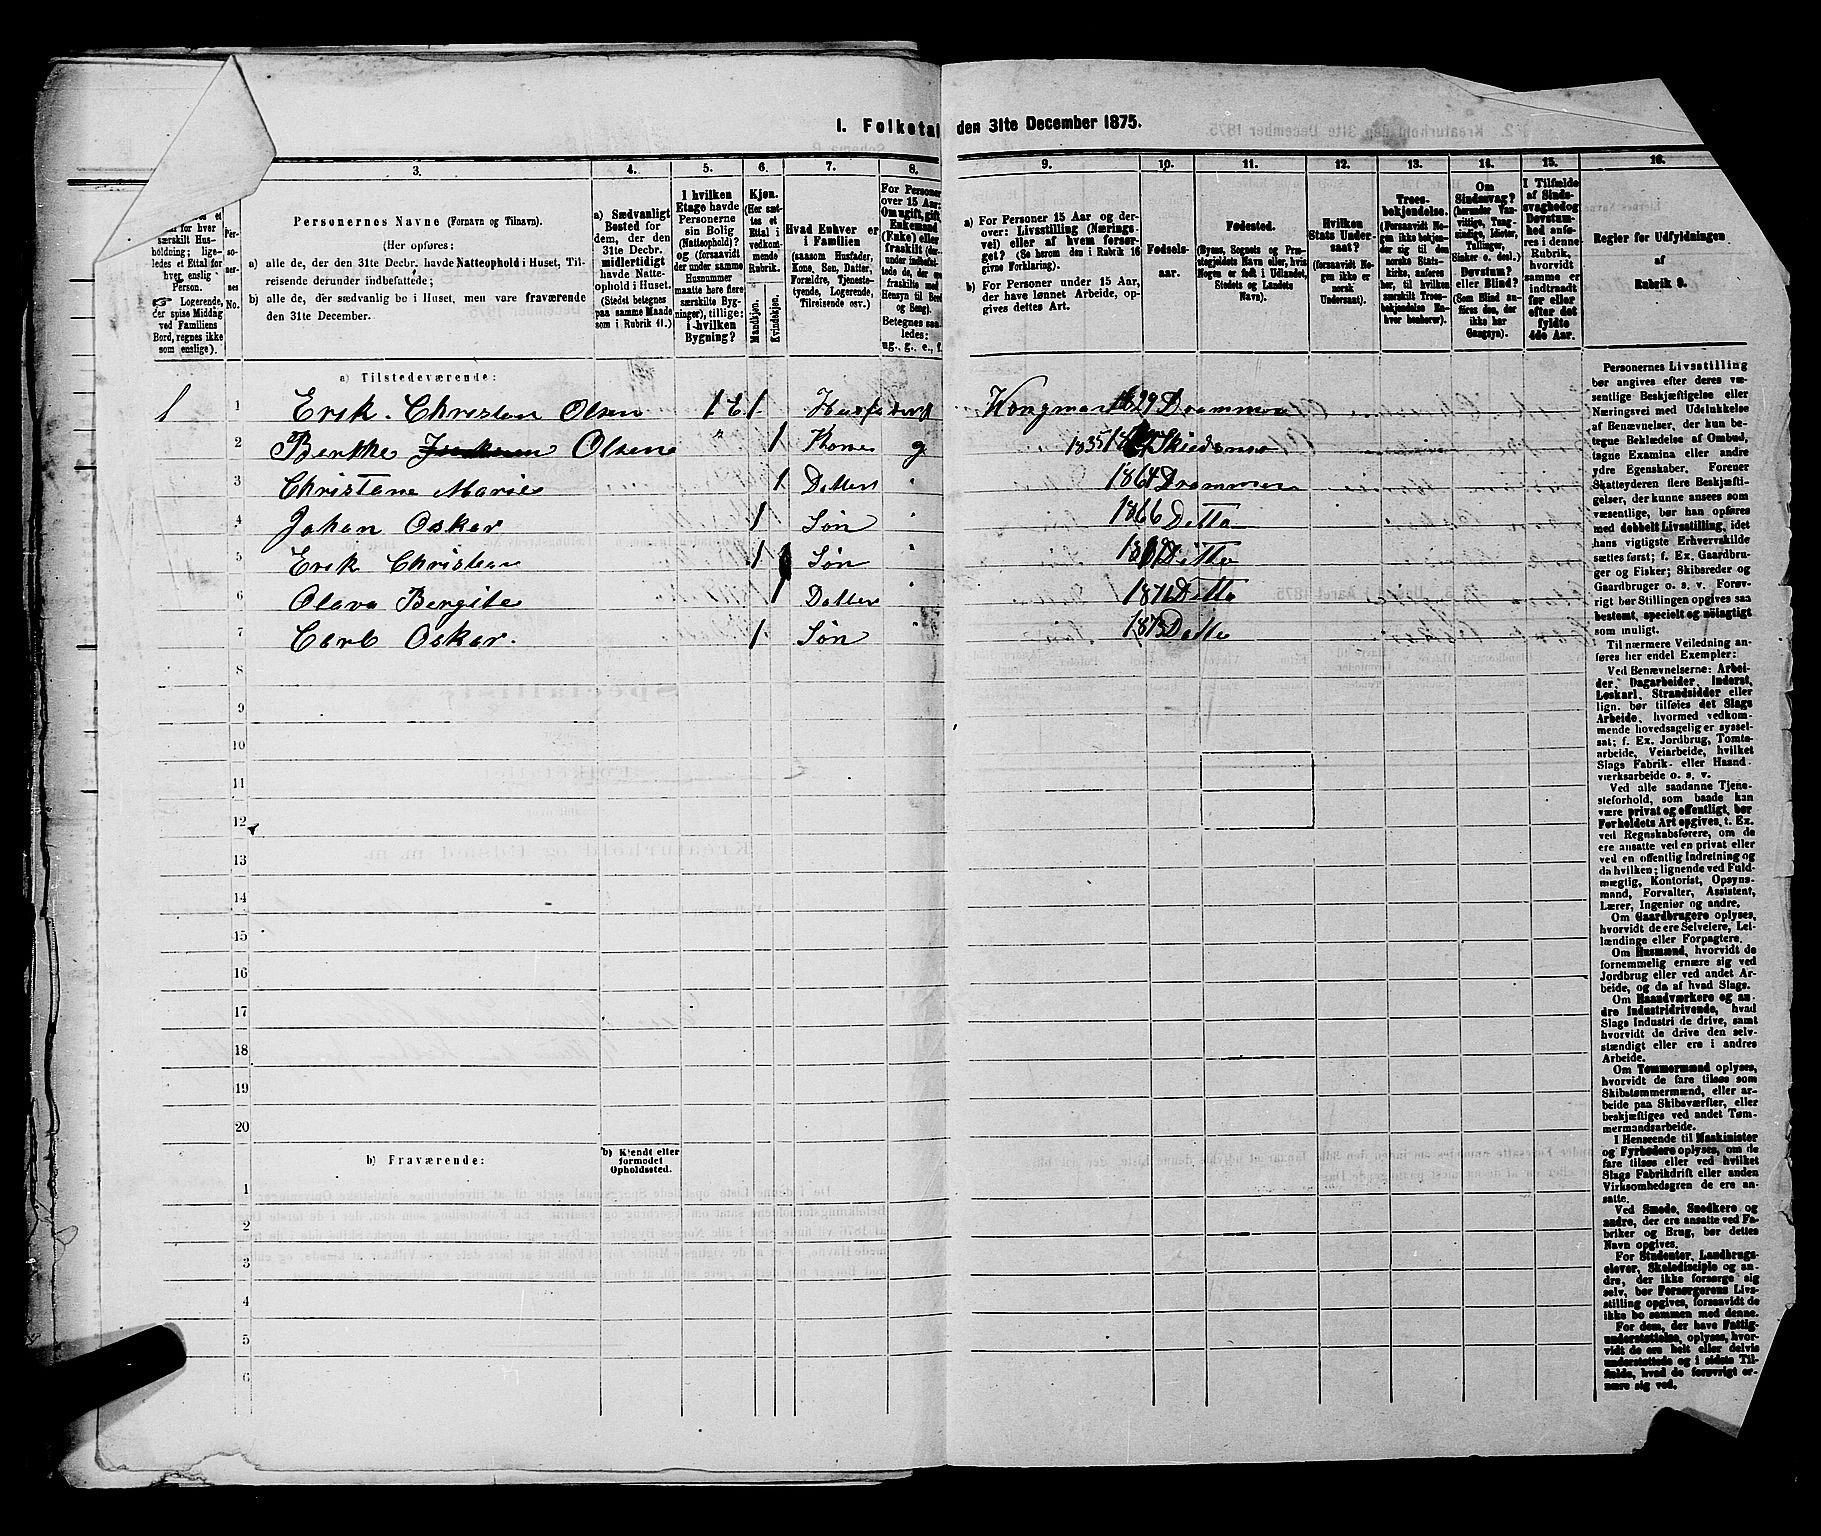 I. Folketal den 31te December 1875.
3. 4. 5. 6. 7. 8. 9. 10. 11. 12. 13. 14. 15. 16.
for hver særskilt Husholdning; ligeledes et Ettal for hver enslig Person.
Logerende, der spise Middag ved Familiens Bord, regnes ikke som enslige).
Personernes No.
Personernes Navne (Fornavn og Tilnavn).
(Her opføres:
a) alle de, der den 31te Decbr. havde Natteophold i Huset, Tilreisende derunder indbefattede;
b) alle de, der sædvanlig bo i Huset, men vare fraværende den 31te December.
a) Sædvanligt Bosted for dem, der den 31te Decbr. midlertidigt havde Natteophold i Huset. (Stedet betegnes paa samme Maade som i Rubrik 11.)
I hvilken Etage havde Personerne sin Bolig (Natteophold)? og (forsaavidt der under samme Husnummer maatte høre flere særskilte Bygninger), tillige: i hvilken Bygning?
Kjøn. (Her sættes et Ettal i vedkommende Rubrik.
Mandkjøn. Kvindekjøn.
Hvad Enhver er i Familien (saasom Husfader, Kone, Søn, Datter, Forældre, Tjenestetyende, Logerende, Tilreisende osv.)
For Personer over 15 Aar: Om ugift, gift, Enkemand (Enke) eller fraskilt (derunder indbefattede de, der ere fraskilte med Hensyn til Bord og Seng). Betegnes saaledes: ug., g., e., f.
a) For Personer 15 Aar og derover: Livsstilling (Næringsvei) eller af hvem forsørget? (Se herom den i Rubrik 16 givne Forklaring).
b) For Personer under 15 Aar, der have lønnet Arbeide, opgives dettes Art.
Fødselsaar.
Fødested. (Byens, Sognets og Præstegjeldets Navn eller, hvis Nogen er født i Udlandet, Stedets og Landets Navn).
Hvilken Stats Undersaat? (forsaavidt Nogen ikke er norsk Undersaat).
Troesbekjendelse. (Forsaavidt Nogen ikke bekjender sig til den norske Statskirke, anføres her, til hvilken særskilt Troesbekjendelse Enhver henhører).
Om Sindssvag? (herunder Vanvittige, Tungsindige, Idioter, Tullinger, Sinker o. desl.) Døvstum? eller Blind? (Som Blind anføres den, der ikke har Gangsyn).
I Tilfælde af Sindssvaghed og Døvstumhed anføres i denne Rubrik, hvorvidt samme er indtraadt før eller efter det fyldte 4de Aar.
Regler for Udfyldningen af Rubrik 9.
a) Tilstedeværende:
1 1 Erik Christian Olsen 1 E 1 Husfader g Kongmand 1829 Drammen
2 Berthe Olsen " 1 Kone g 1835 Skedsmo
3 Christane Marie 1 Datter " 1864 Drammen
4 Johan Oskar 1 Søn " 1866 Ditto
5 Erik Christian 1 Søn " Ditto
6 Olava Bergite 1 Datter " 1871 Ditto
7 Carl Oskar. 1 Søn " 1873 Ditto
8
9
10
11
12
13
14
15
16
17
18
19
20
b) Fraværende:
b) Kjendt eller formodet Opholdssted.
1
2
3
4
5
6
Personernes Livsstilling
bør angives efter deres væ-
sentlige Beskjæftigelse eller
Næringsvei med Udelukkelse
af Benævnelser, der kun be-
tegne Beklædelse af Ombud,
tagne Examina eller andre
ydre Egenskaber. Forener
Skatteyderen flere Beskjæfti-
gelser, der kunne ansees som
væsentlige, bør han opføres
med dobbelt Livsstilling, idet
hans vigtigste Erhvervskilde
sættes først; f. Ex. Gaardbru-
ger og Fisker; Skibsreder og
Gaardbruger o. s. v. Forøv-
rigt bør Stillingen opgives saa
bestemt, specielt og nøiagtigt
som muligt.
Til nærmere Veiledning an-
føres her endel Exempler:
Ved Benævnelserne: Arbei-
der, Dagarbeider, Inderst,
Løskarl, Strandsidder eller
lign. bør tilføies det Slags
Arbeide, hvormed vedkom-
mende hovedsagelig er syssel-
sat; f. Ex. Jordbrug, Tomte-
arbeide, Veiarbeide, hvilket
Slags Fabrik- eller Haand-
værksarbeide o. s. v.
Ved alle saadanne Tjene-
steforhold, som baade kan
være privat og offentligt, bør
Forholdets Art opgives, t. Ex.
ved Regnskabsførere, om de
ere ansatte ved en privat eller
ved en offentlig Indretning og
da hvilken; lignende ved Fuld-
mægtig, Kontorist, Opsyns-
mand, Forvalter, Assistent,
Lærer, Ingeniør og andre.
Om Gaardbrugere oplyses,
hvorvidt de ere Selveiere, Lei-
lændinge eller Forpagtere.
Om Husmænd, hvorvidt de
fornemmelig ernære sig ved
Jordbrug eller ved andet Ar-
beide, og da af hvad Slags.
Om Haandværkere og an-
dre Industridrivende, hvad
Slags Industri de drive, samt
hvorvidt de drive den selv-
stændigt eller ere i andres
Arbeide.
Om Tømmermænd oplyses,
hvorvidt de fare tilsøs som
Skibstømmermænd, eller ar-
beide paa Skibsværfter, eller
beskjæftiges ved andet Tøm-
mermandsarbeide.
I Henseende til Maskinister
og Fyrbødere oplyses, om de
fare tilsøs eller ved hvilket
Slags Fabrikdrift eller anden
Virksomhedsgren de ere an-
satte.
Ved Smede, Snedkere og
andre, der ere ansatte ved Fa-
briker og Brug, bør dettes
Navn opgives.
For Studenter, Landbrugs-
elever, Skoledisciple og an-
dre, der ikke forsørge sig
selv, bør Forsørgerens Livs-
stilling opgives, forsaavidt de
ikke bo sammen med denne.
For dem, der have Fattig-
understøttelse, oplyses, hvor-
vidt de ere helt eller delvis
understøttede og i sidste Til-
fælde, hvad de forøvrigt er-
nære sig ved.